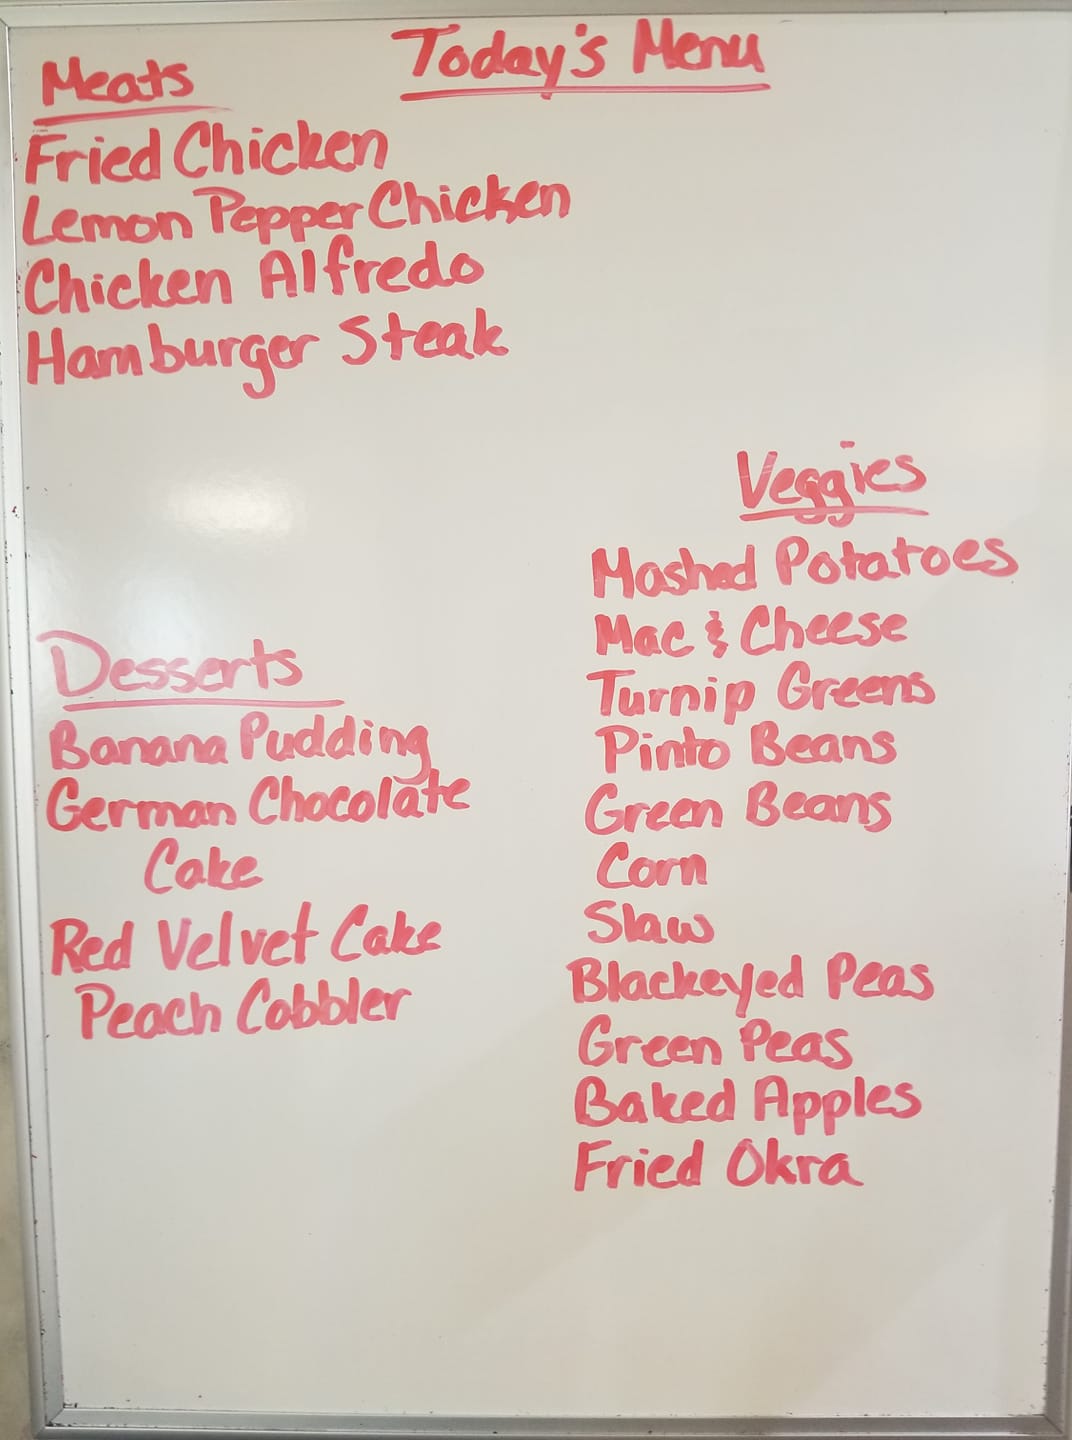 Today's Menu
Meats
Fried Chicken
Lemon Pepper Chicken
Chicken Alfredo
Hamburger Steak
Veggies
Mashed Potatoes
Mac & Cheese
Turnip Greens
Pinto Beans
Green Beans
Corn
Slaw
Blackeyed Peas
Green Peas
Baked Apples
Fried Okra
Desserts
Banana Pudding
German Chocolate
Cake
Red Velvet Cake
Peach Cobbler